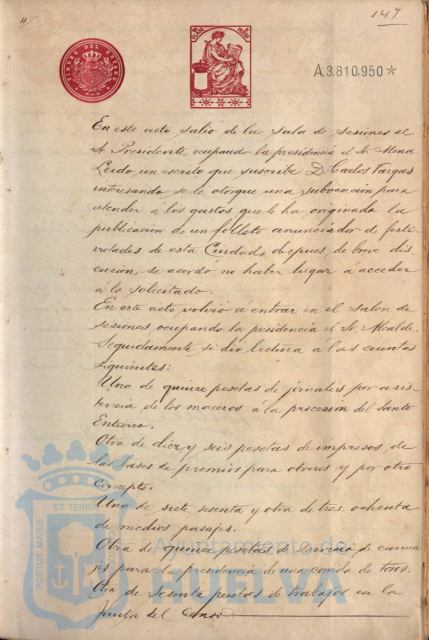 147
A.3.810.950*
En este acto salio de la sala de sesiones el
Sr Presidente, ocupando la presidencia el Sr. Mena
Leido un escrito que suscribe D. Carlos Vargas
interesando se le otorgue una subvencion para
atender a los gastos, que le ha originado la
publicacion de un folleto anunciador de festi-
vidades de esta Ciudad, despues de breve dis-
cusion, se acordó no haber lugar á acceder
á lo solicitado.
En este acto volvió á entrar en el salon de
sesiones, ocupando la presidencia el Sr Alcalde.
Seguidamente se dió lectura á las cuentas
siguientes:
Una de quince pesetas de jornales por asis-
tencia de los maceros á la procesion del Santo
Entierro.
Otra de diez y seis pesetas de impresos de
las bases de premios para obreros y por otro
concepto.
Una de siete sesenta y otra de tres ochenta
de medios pasajes.
Otra de quince pesetas de servicio de carrua
jes para la presidencia de una corrida de toros.
Otra de sesenta pesetas de trabajos en la
Junta del Censo
PORTUS MARIS
ET TERRAE
Ayuntamiento de
HUELVA